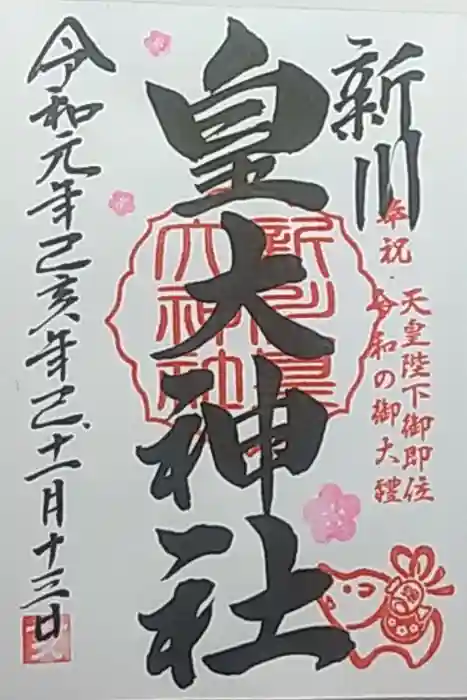 新川
皇大神社
天皇陛下御即位
奉祝・令和の御大禮
令和元年己亥年十一月十三日